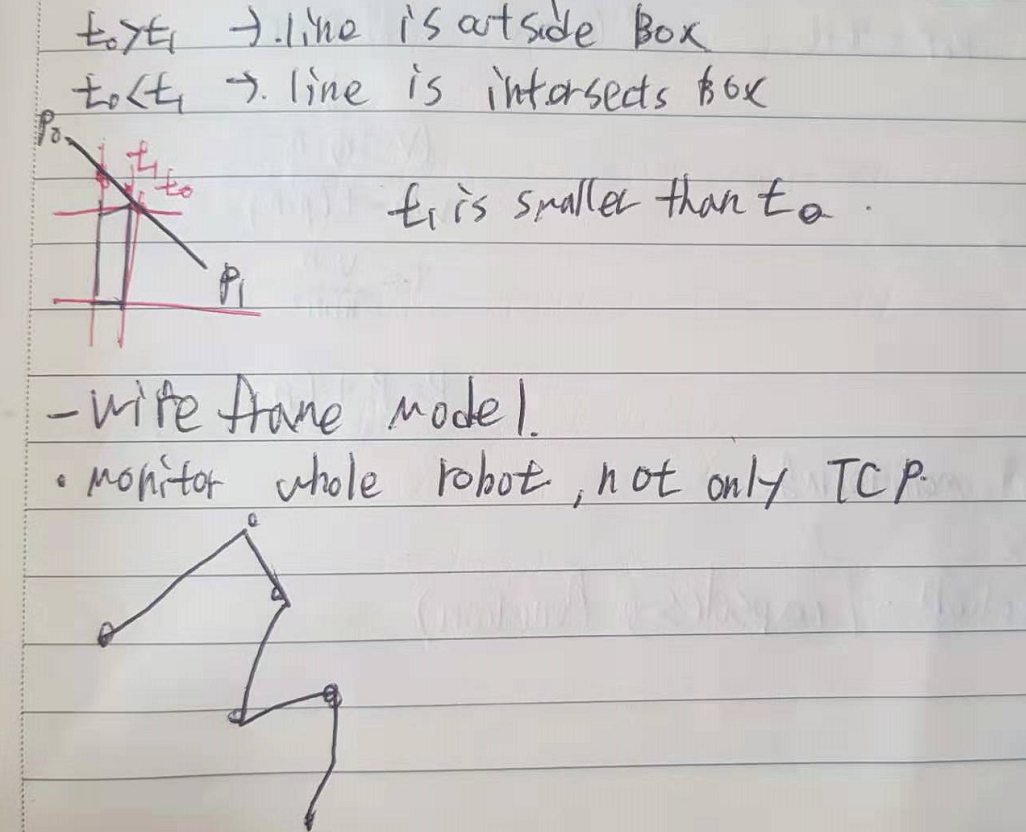 t₀>t₁ →. line is outside Box
t₀<t₁ →. line is intersects Box
P₀
t₁
t₀
t₁ is smaller than t₀.
P₁
- wire frame model.
• monitor whole robot, not only TCP.